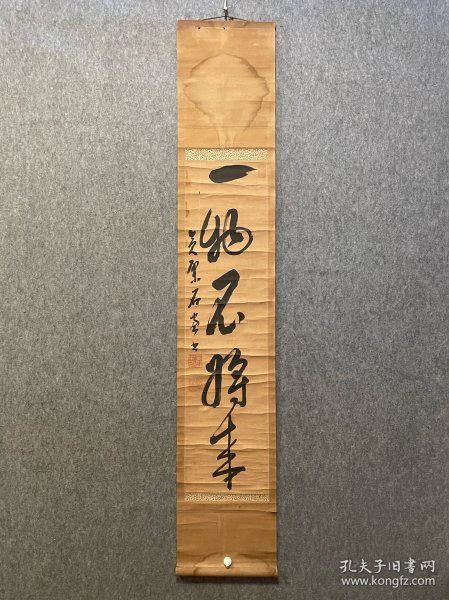 一物不將来
黄檗石
孔夫子旧书网
www.kongfz.com